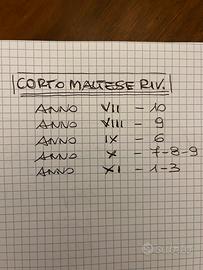 CORTO MALTESE RIV.
ANNO VII - 10
ANNO VIII - 9
ANNO IX - 6
ANNO X - 7-8-9
ANNO XI - 1-3
subito